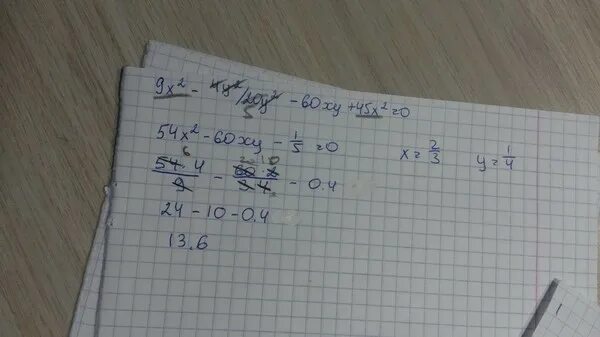 9x² - 4y²/20y² - 60xy + 45x² = 0
5
54x² - 60xy - 1/5 = 0 x = 2/3 y = 1/4
6 2 10
54·4/9 - 60·2/3·4 - 0.4
24 - 10 - 0.4
13.6